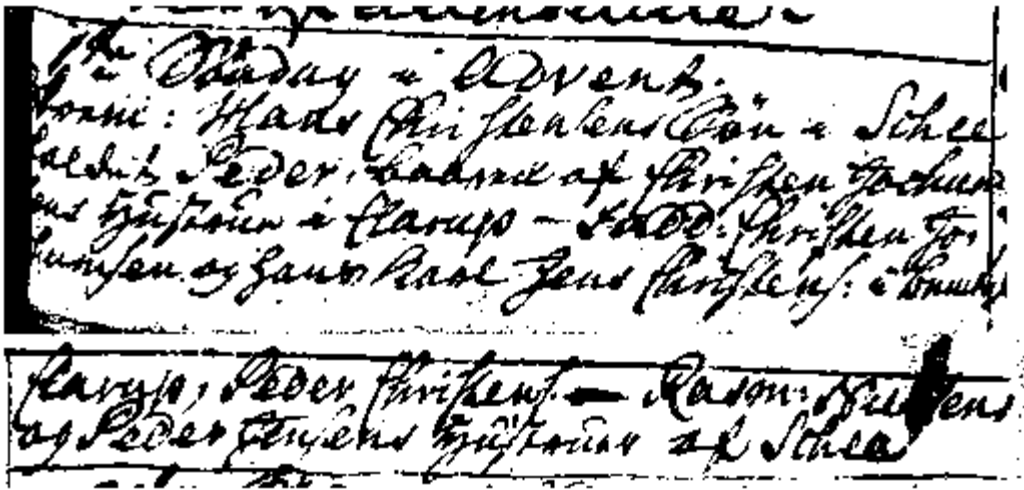 1te Söndag i Advent.
Mads Christensens Sön i Schee
kaldet Peder, baaren af Christen Jochum
sens Hustrue i Flarup - Fadd: Christen Jo-
humsen og hans Karl Jens Christens: i
Flarup, Peder Christens. - Rasm: Nielsens
og Peder Jensens Hustruer af Schee